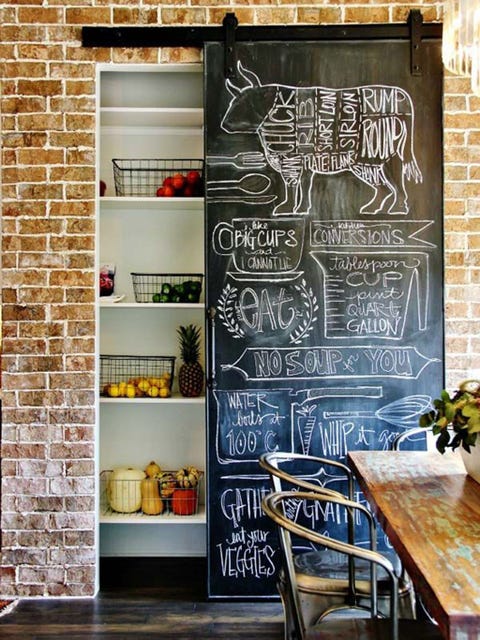 CHUCK
RIB
SHORT LOIN
SIRLOIN
RUMP
ROUND
SHANK
PLATE
FLANK
SHANK
I like
BIG CUPS
and
I CANNOT LIE
kitchen
CONVERSIONS
tablespoon
CUP
pint
QUART
GALLON
eat
NO SOUP for YOU
WATER
boils at
100°C
WHIP it go
GATHER
eat your
VEGGIES